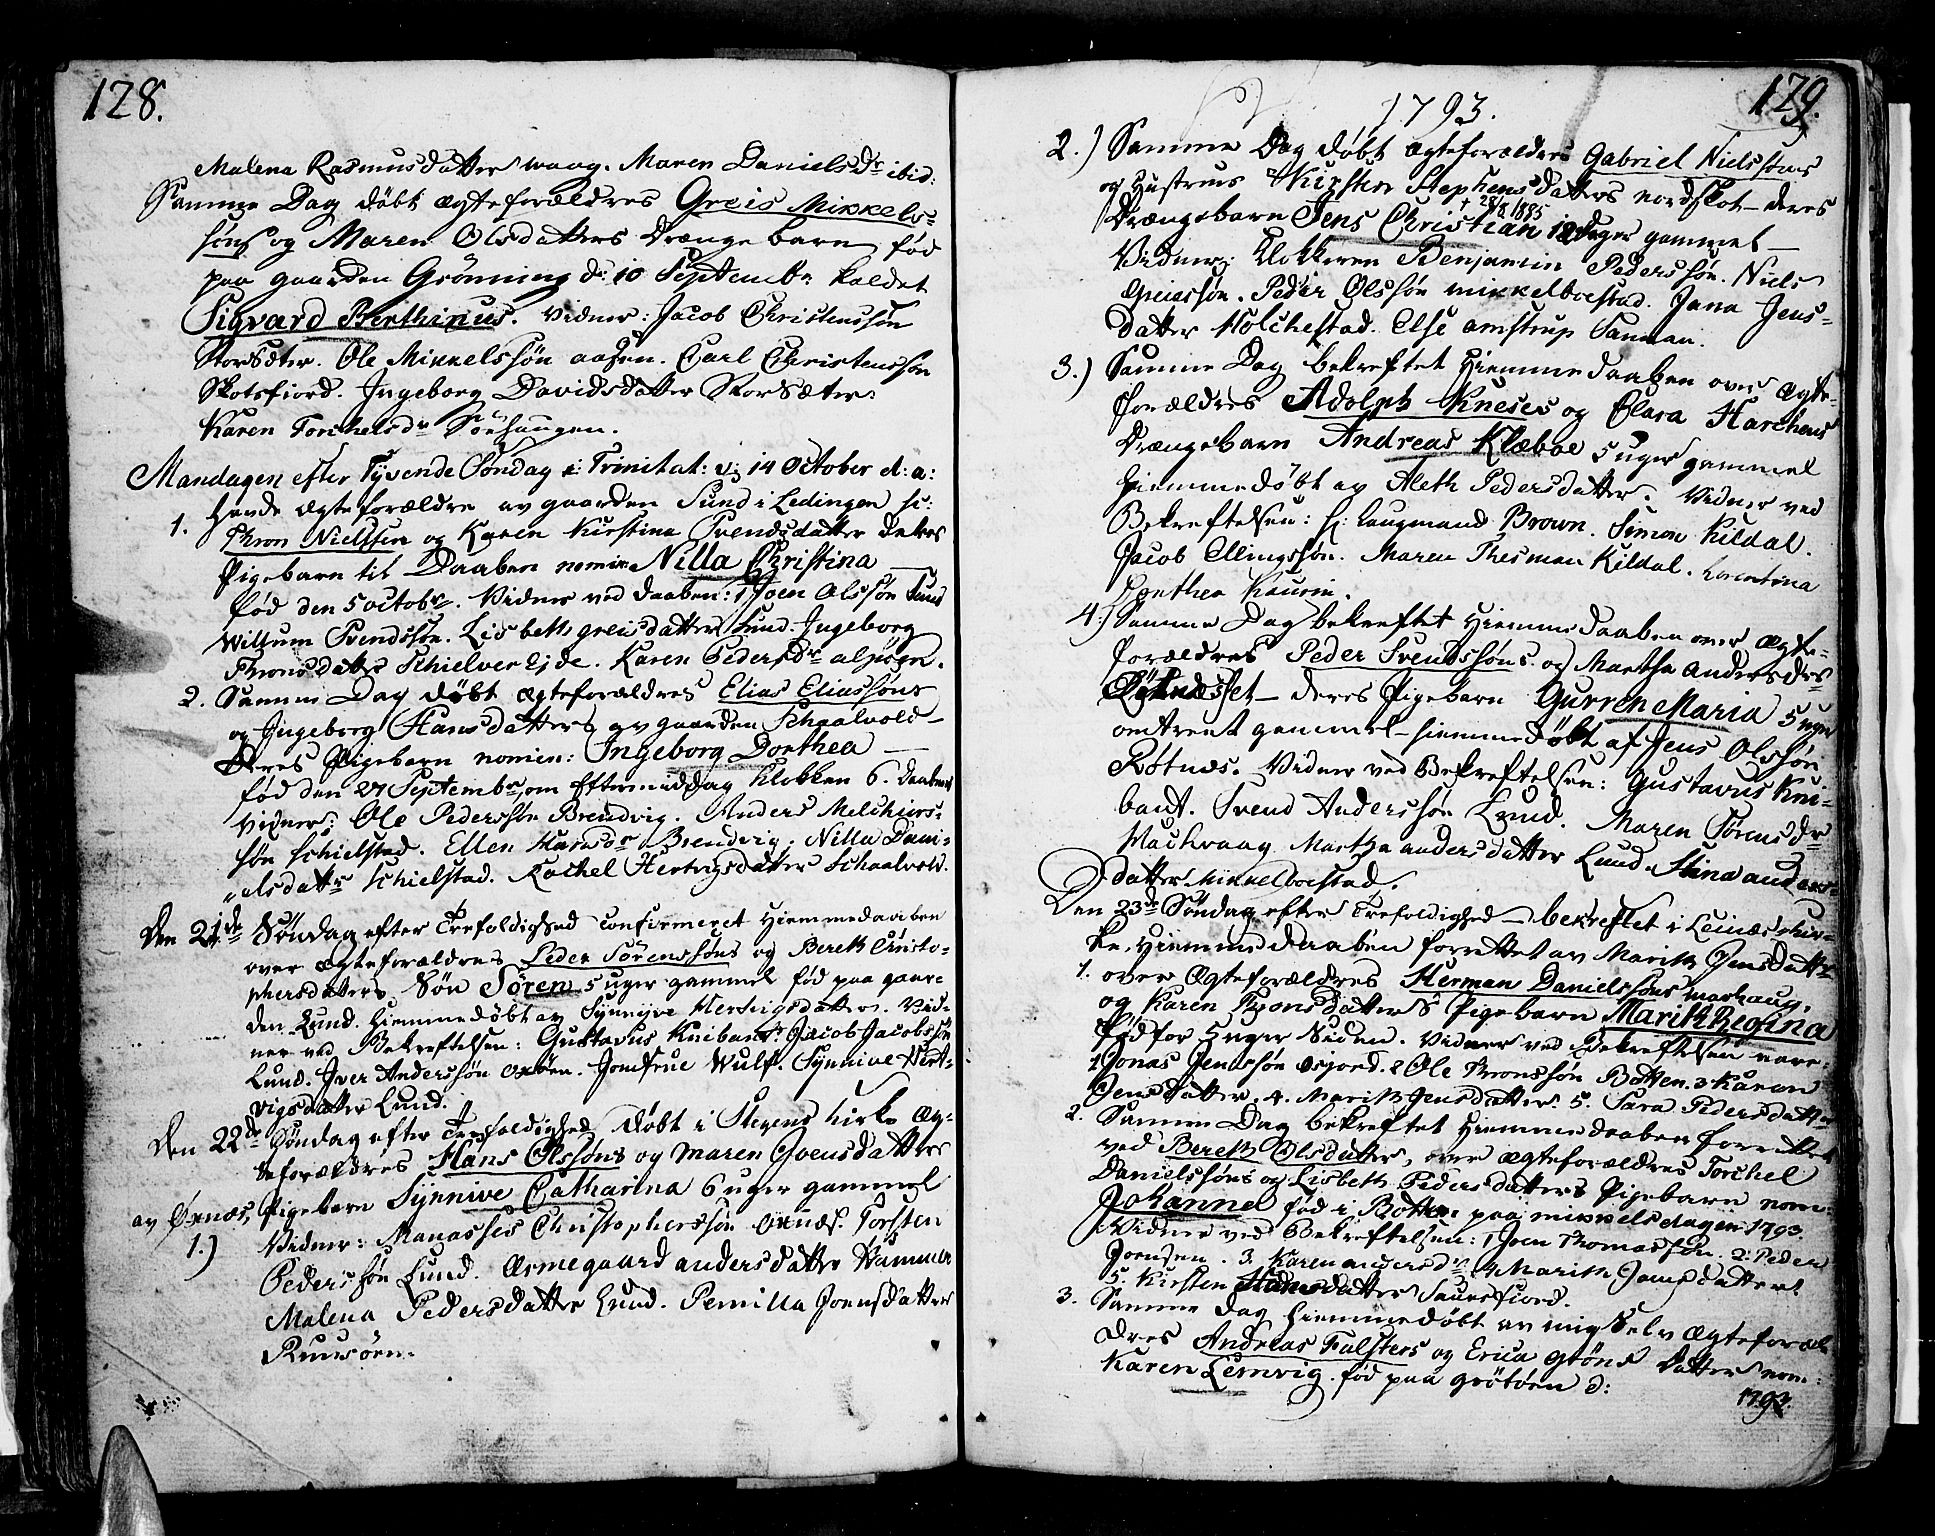 128.
Malena Rasmusdatter waag. Maren Daniels Dr ibid:
Samme Dag døbt ægteforældres Greis Mikkels-
søns og Maren Olsdatters Drængebarn, fød
paa gaarden Grønning d: 10 Septembr kaldet
Sigvard Berthinus. Vidner: Jacob Christenssøn
Storsæter. Ole Mikkelssøn aasen. Carl Christenssøn
Skotsfiord. Ingeborg Davidsdatter Storsæter.
Karen Torchelsdr Sørhaugen.
Mandagen efter Tyvende Søndag e: Trinitat: v: 14 October d: a:
1. Havde ægteforældre av gaarden Sund i Lødingen
Thron Nielssøn og Karen Kirstina Svendsdatter deres
Pigebarn til Daaben nomine Nilla Christina
fød den 5 octobr. Vidner ved daaben: 1 Joen Olssøn Sund
Willum Svendssøn. Lisbeth greisdatter Sund. Ingeborg
Thronsdatter Schielver Eide. Karen Pedersdr
2. Samme Dag døbt ægteforældres Elias Eliassøns
og Ingeborg Hansdatters av gaarden Schaalvold
Deres Pigebarn nomin: Ingeborg Dorthea
fød den 27 Septembr om Eftermiddag Klokken 6. Daabens
Vidner: Ole Pederssøn Brendvig. Anders Melchiors-
søn Schielstad. Ellen Hansdr Brendvig. Nilla Dani-
elsdatter Schielstad. Rachel Hertvigsdatter Schaalvold.
Den 21de Søndag efter Trefoldighed Confirmeret Hiemmedaaben
over ægteforældres Peder Sörenssøns og Bereth Christo-
phersdatters Søn Sören 5 uger gammel fød paa gaar-
den Lund. Hiemmedøbt av Synnive Hertvigsdatter. Vid-
ner ved Bekreftelsen: Gustavus Knibandt. Jacob Jacobssøn
Lund. Iver Anderssøn oxøen. Jomfrue Wulf. Synnive Hert-
vigsdatter Lund.
Den 22de Søndag efter Trefoldighed døbt i Stegens Kirke Æg-
teforældres Hans Olssøns og Maren Joensdatters
av Øxnæs, Pigebarn Synnive Catharina 6 uger gammel
1.) Vidner: Manasses Christopherssøn Øxnæs. Torsten
Pederssøn Lund. Armegaard andersdatter
Malena Pedersdatter Lund. Pernilla Joensdatter

1793.
129.
2.) Samme Dag døbt ægteforældres Gabriel Nielssøns
og Hustrues Kirsten Stephensdatters nordskot - deres
+ 28/8 1885
Drængebarn Jens Christian 12 dager gammel
Vidner: Klokkeren Benjamin Pederssøn. Niels
Greissøn. Peder Olssøn mikkelboestad. Jana Jens-
datter Holchestad. Else amstrup
3.) Samme Dag bekreftet Hiemmedaaben over Ægte-
forældres Adolph Kneses og Clara Harchens
Drængebarn Andreas Klæboe 5 uger gammel
hiemmedøbt av Aleth Pedersdatter. Vidner ved
Bekreftelsen: Hr Laugmand Brown. Simon Kildal.
Jacob Ellingssøn. Maren Thesman Kildal. Lorentina
Dorthea Kaurin.
4.) Samme Dag bekreftet Hiemmedaaben over Ægte-
forældres Peder Svendssøns og Martha Andersdrs
deres Pigebarn Gurren Maria 5 uger
omtrent gammel - hiemmedøbt af Jens Olssøn
Røtnæs. Vidner ved Bekreftelsen: Gustavus Kni-
bandt. Svend Anderssøn Lund. Maren Sörensdr
Martha andersdatter Lund. Stina anders-
datter Mikkelboestad.
Den 23de Søndag efter Trefoldighed - bekreftet i Leinæs Kir-
ke, Hiemmedaaben forrettet av Marith Jensdatter
1. over Ægteforældres Herman Danielssøns maahaug,
og Karen Thronsdatters Pigebarn Marith Regina
fød for 5 uger Siden. Vidner ved Bekreftelsen vare:
1 Jonas Jenssøn Osjord. 2 Ole Thronssøn Botten. 3 Karen
Jensdatter. 4. Marith Jensdatter. 5. Sara Pedersdatter
2. Samme Dag bekreftet Hiemmedaaben forrettet
ved Bereth Olsdatter, over ægteforældres Torchel
Danielssøns og Lisbeth Pedersdatters Pigebarn nom:
Johanna fød i Botten paa mikkelsdagen 1793.
Vidner ved Bekreftelsen: 1 Joen Thomassøn. 2: Peder
Joensen. 3. Karen andersdr. 4 Marith Jansdatter.
5. Kirsten Hansdatter Saursfiord.
3. Samme Dag Hiemmedøbt av mig Selv Ægteforæl-
dres Andreas Falsters og Erica Grøns Datter nom:
Karen Lemvig. fød paa grøtøen d:
1793.